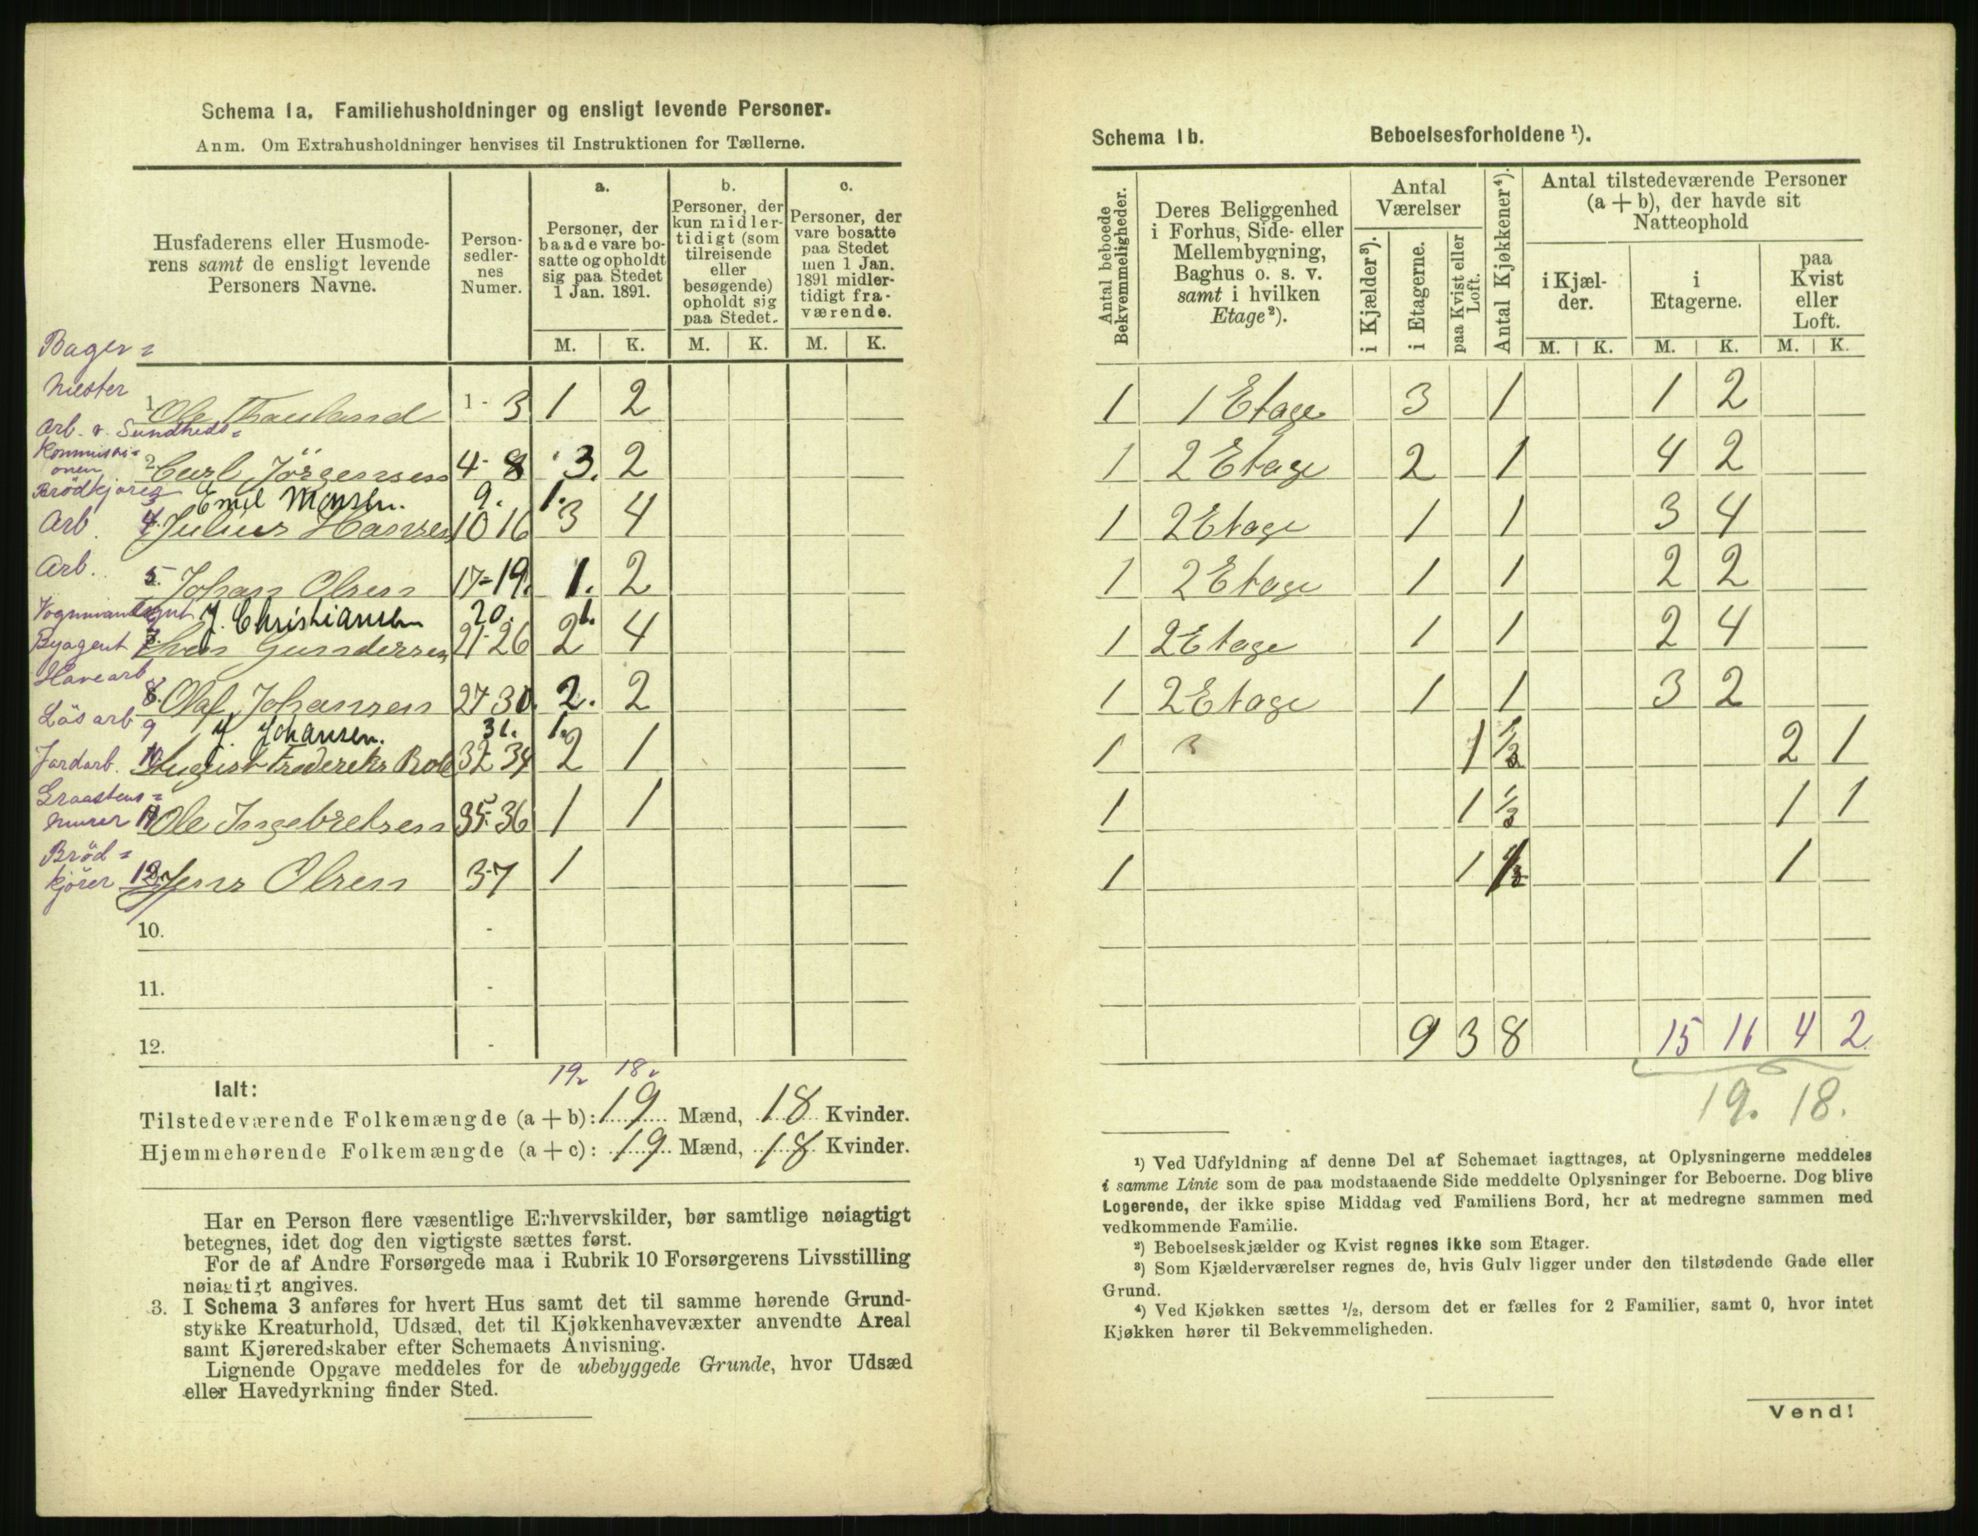 Schema 1a. Familiehusholdninger og ensligt levende Personer.
Anm. Om Extrahusholdninger henvises til Instruktionen for Tællerne.
Husfaderens eller Husmoderens samt de ensligt levende Personers Navne.
Person-sedlernes Numer.
a. Personer, der baade vare bosatte og opholdt sig paa Stedet 1 Jan. 1891.
b. Personer, der kun midlertidigt (som tilreisende eller besøgende) opholdt sig paa Stedet.
c. Personer, der vare bosatte paa Stedet men 1 Jan. 1891 midlertidigt fraværende.
M. K. M. K. M. K.
Bager=
mester 1 Ole Thauland 1-3 1 2
Arb. v. Sundheds=
Kommissi=
onen 2 Carl Jörgensen 4-8 3. 2
Brödkjører 3 Emil Monsen. 9. 1.
Arb. 4. Julius Hansen 10 16 3 4
Arb. 5. Johan Olsen 17-19. 1. 2
Vognmand J. Christiansen 20. 1.
Byagent 7. Gundersen 21-26 2 4
Havearb 8. Olaf Johansen 27 30. 2. 2
Lös arb 9 Johansen. 31. 1.
Jordarb. 10 August Frederiks 32 34 2 1
Graastens=
murer 11 Ole Ingebretsen 35-36 1 1
Bröd=
kjører 12. Jens Olsen 37 1
10. -
11. -
12. -
19. 18.
Ialt:
Tilstedeværende Folkemængde (a + b): 19 Mænd, 18 Kvinder.
Hjemmehørende Folkemængde (a + c): 19 Mænd, 18 Kvinder.
Har en Person flere væsentlige Erhvervskilder, bør samtlige nøiagtigt
betegnes, idet dog den vigtigste sættes først.
For de af Andre Forsørgede maa i Rubrik 10 Forsørgerens Livsstilling
nøiagtigt angives.
3. I Schema 3 anføres for hvert Hus samt det til samme hørende Grund-
stykke Kreaturhold, Udsæd, det til Kjøkkenhavevæxter anvendte Areal
samt Kjøreredskaber efter Schemaets Anvisning.
Lignende Opgave meddeles for de ubebyggede Grunde, hvor Udsæd
eller Havedyrkning finder Sted.
Schema 1b. Beboelsesforholdene ¹).
Antal beboede Bekvemmeligheder.
Deres Beliggenhed i Forhus, Side- eller Mellembygning, Baghus o. s. v. samt i hvilken Etage²).
Antal Værelser
i Kjælder³).
i Etagerne.
paa Kvist eller Loft.
Antal Kjøkkener⁴).
Antal tilstedeværende Personer (a + b), der havde sit Natteophold
i Kjælder.
i Etagerne.
paa Kvist eller Loft.
M. K. M. K. M. K.
1 1 Etage 3 1 1 2
1 2 Etage 2 1 4 2
1 2 Etage 1 1 3 4
1 2 Etage 1 1 2 2
1 2 Etage 1 1 2 4
1 2 Etage 1 1 3 2
1 3 1 1/3 2 1
1 1 1/3 1 1
1 1 1/3 1
9 3 8 15 16 4 2
19. 18.
¹) Ved Udfyldning af denne Del af Schemaet iagttages, at Oplysningerne meddeles
i samme Linie som de paa modstaaende Side meddelte Oplysninger for Beboerne. Dog blive
Logerende, der ikke spise Middag ved Familiens Bord, her at medregne sammen med
vedkommende Familie.
²) Beboelseskjælder og Kvist regnes ikke som Etager.
³) Som Kjælderværelser regnes de, hvis Gulv ligger under den tilstødende Gade eller
Grund.
⁴) Ved Kjøkken sættes ½, dersom det er fælles for 2 Familier, samt 0, hvor intet
Kjøkken hører til Bekvemmeligheden.
Vend!